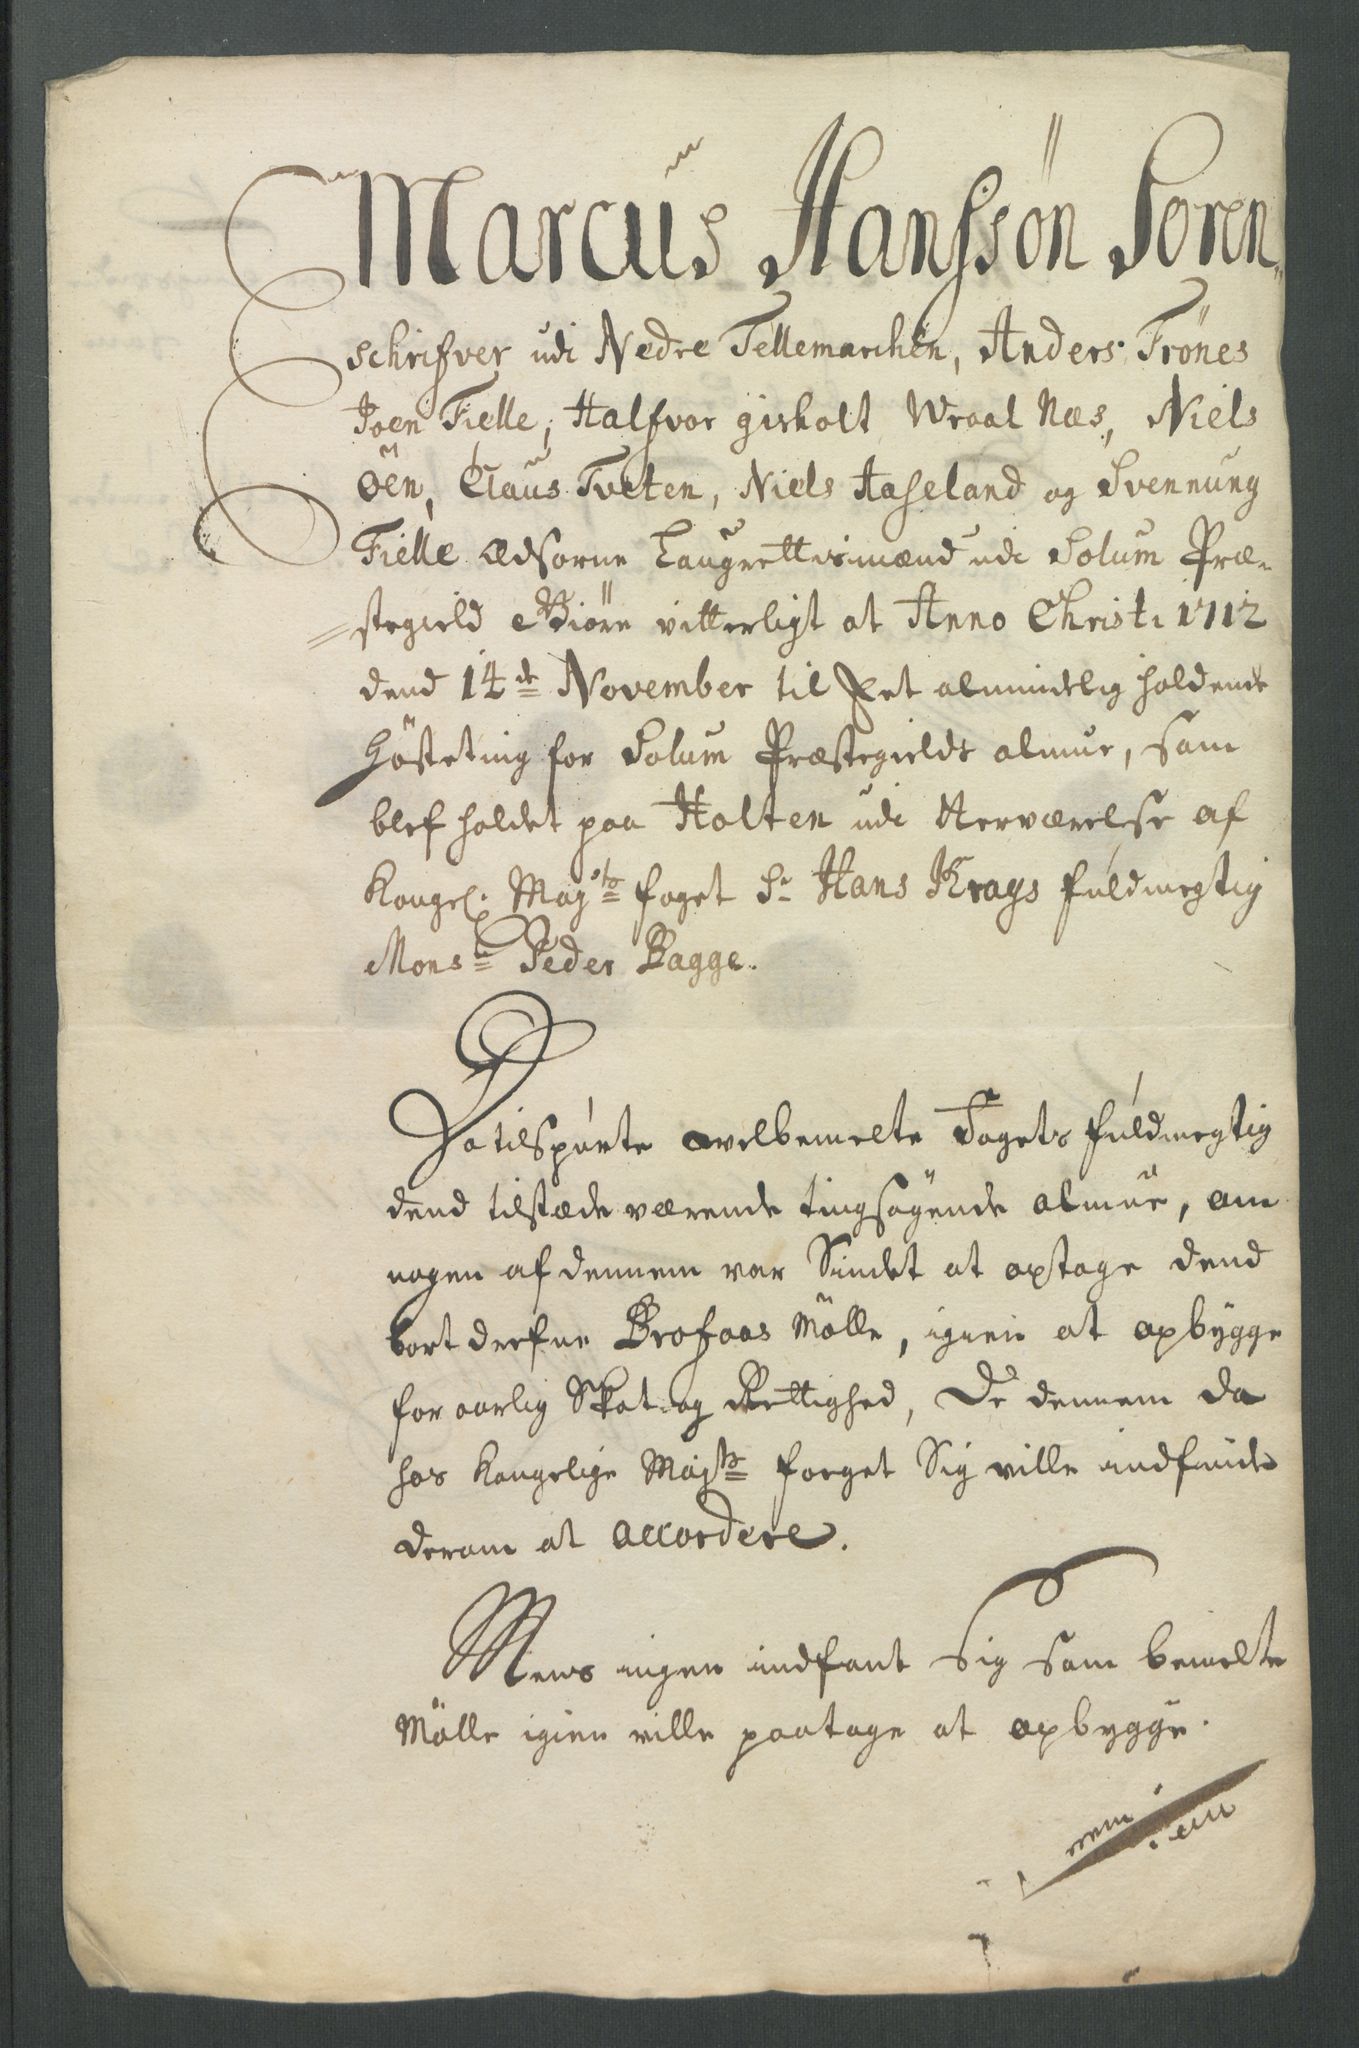 Marcus Hansøn Soren
schrifver udi Nedre Tellemarchen, Anders Trönes
Joen Fielle, Halfvor gisholt Wraal Næs, Niels
öen, Claus Tveten, Niels Aaseland og Svennung
Fielle Edsorne Laugrettismænd udi Solum Præ-
stegield Giøre vitterligt at Anno Christi 1712
dend 14de November til Et almindelig holdende
Høsteting for Solum Præstegields almue, som
blef holdet paa Holten udi Nerværelse af
Kongel. Mayts foget Sr Hans Krags fuldmegtig
Monsr Peder Bagge.
Da tilspurte velbemelte Fogets fuldmegtig
dend tilstæde værende tingsøgende almue, om
nogen af dennem var Sindet at optage dend
bort drefne Brofoss Mölle, igien at opbygge
for aarlig Skat og Rettighed, De dennem da
hos Kongelige Mayts foeget Sig ville indfinde
derom at accordere.
Mens ingen indfant Sig som bemelte
Mölle igien ville paatage at opbygge.